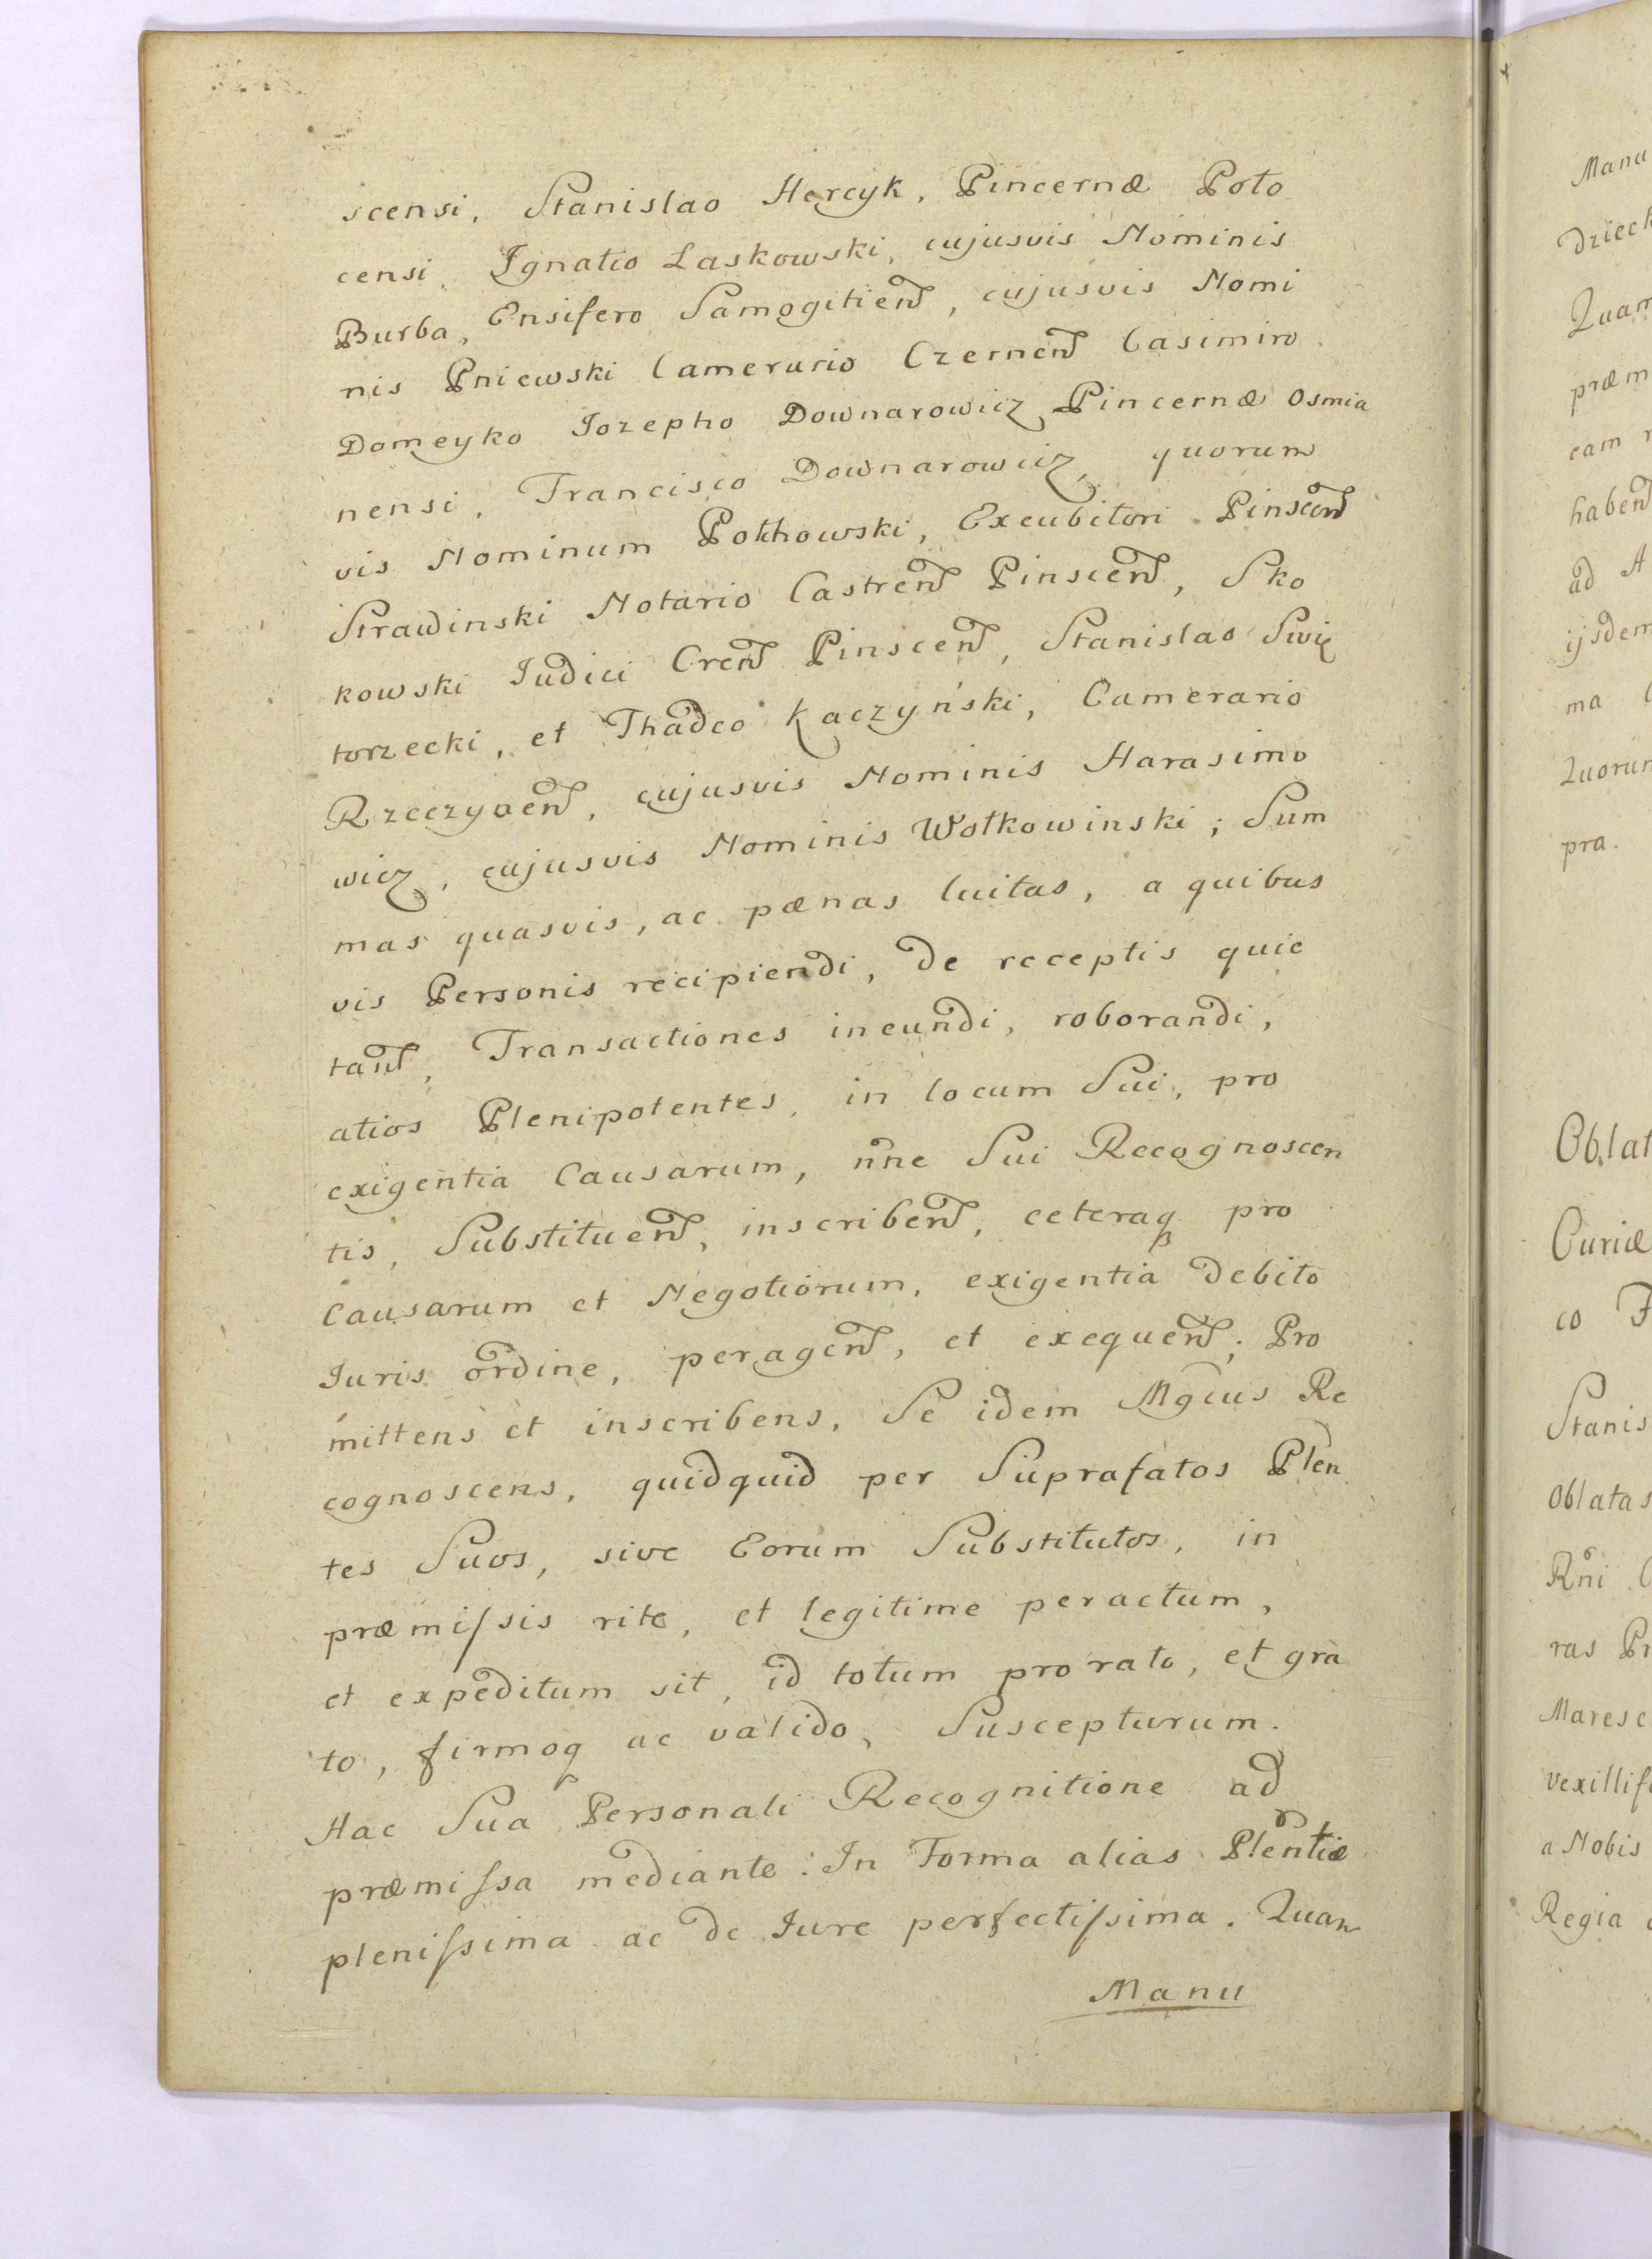 scensi, Stanislao Hercyk, Pincernæ Poto
censi, Ignatio Laskowski, cujusvis Nominis
Burba, Ensifero Samogitień, cujusvis Nomi
nis Pniewski Camerario Czerneń Casimiro
Domeyko Iozepho Downarowicz Pincernæ Osmia
nensi, Francisco Downarowicz, quorum
vis Nominum Polkhowski, Excubitori Pinsceń
Strawinski Notario Castreń Pinsceń, Sko
kowski Iudici Creń Pinsceń, Stanislao Swię
torzecki, et Thadeo Kaczyński, Camerario
Rzeczyceń, cujusvis Nominis Harasimo
wicz, cujusvis Nominis Wołkowinski; Sum
mas quasvis, ac pœnas luitas, a quibus
vis Personis recipiendi, de receptis quie
tań, Transactiones ineundi, roborandi,
alios Plenipotentes, in locum Sui, pro
exigentia Causarum, nne Sui Recognoscen
tis, Substitueń, inscribeń, ceteraq pro
Causarum et Negotiorum, exigentia debito
Iuris ordine, perageń, et exequeń; Pro
mittens et inscribens, Se idem Mgcus Re
cognoscens, quidquid per Suprafatos Plen
tes Suos, sive Eorum Substitutos, in
præmissis rite, et legitime peractum,
et expeditum sit, id totum pro rato, et gra
to, firmoq ac valido, Suscepturum.
Hac Sua Personali Recognitione ad
præmissa mediante. In Forma alias Plentiæ
plenissima ac de Iure perfectissima. Quam
Manu
Manu
dziec
Quam
præm
eam
habeń
ad A
ijsdem
ma
Quorum
pra.
Oblat
Curiæ
co
Stanis
Oblatas
Rni
ras Pr
Maresc
Vexillif
a Nobis
Regia